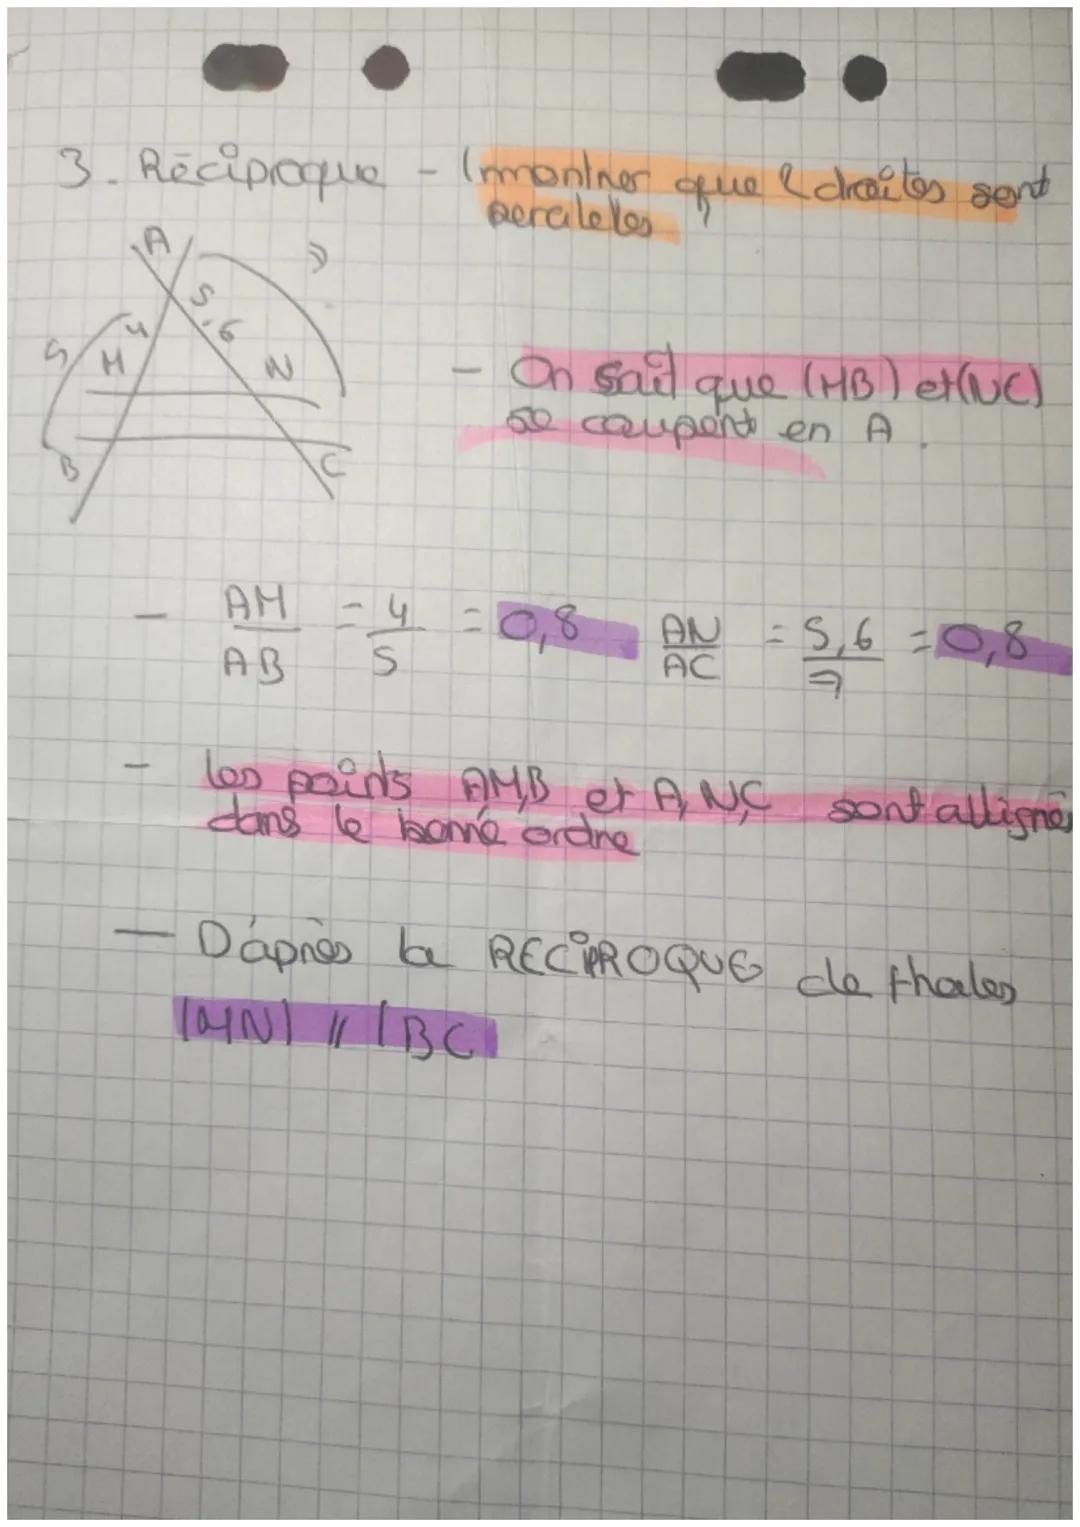 3. Réciproque - (montrer que 2 droites sont
paraleles
A
5,6
7
4
5
M
N
B
C
- On sait que (MB) et (NC)
se coupent en A.
- AM/AB = 4/5 = 0,8 AN/AC = 5,6/7 = 0,8
- les points A,M,B et A,N,C sont allignés
dans le bonne ordre
- D'après la RECIPROQUE de thales
(MN) // (BC